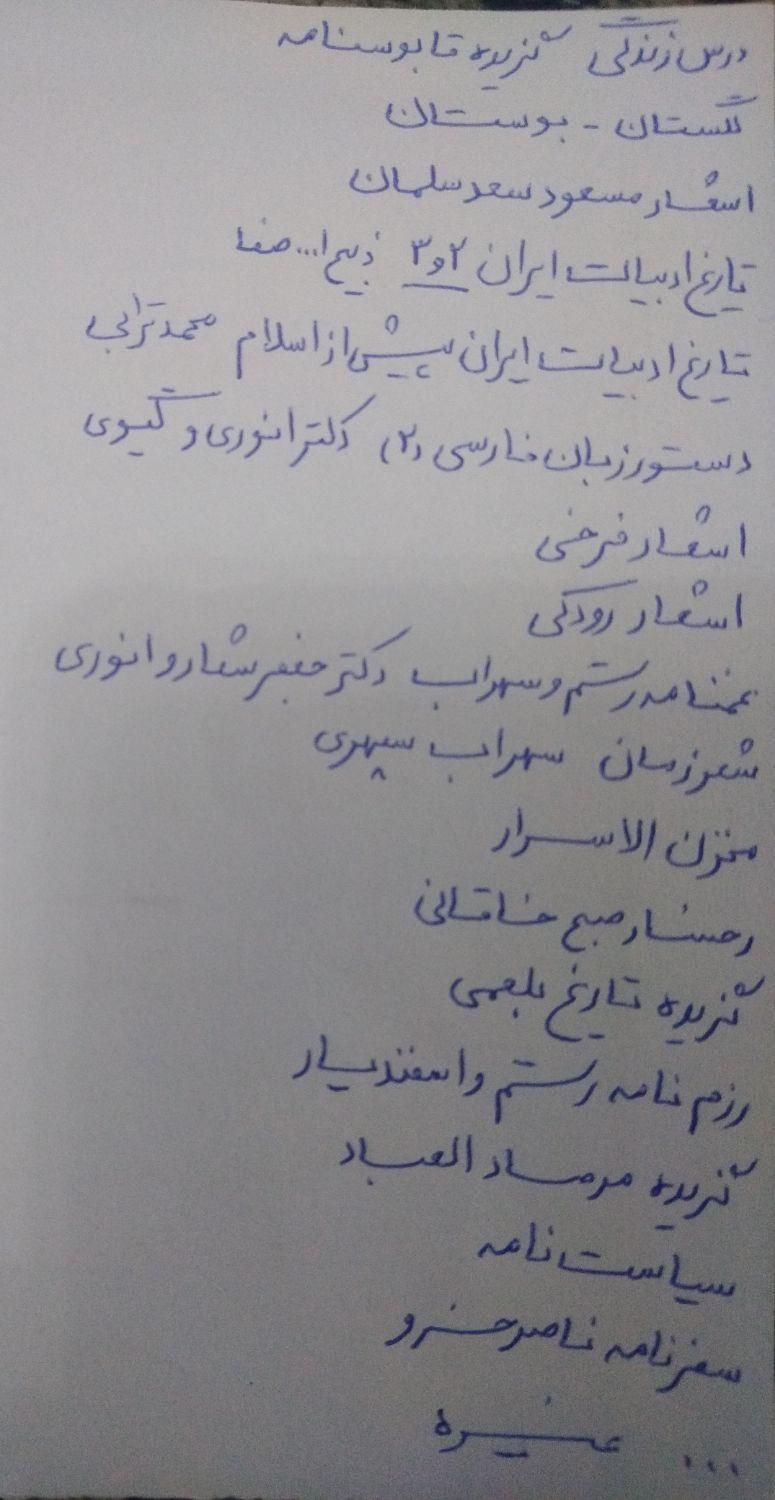 درس زندگی گزیده قابوسنامه
گلستان - بوستان
اشعار مسعود سعد سلمان
تاریخ ادبیات ایران ۲ و ۳ ذبیح ا... صفا
تاریخ ادبیات ایران پیش از اسلام محمد ترابی
دستور زبان فارسی (۲) دکتر انوری و گیوی
اشعار فرخی
اشعار رودکی
غمنامه رستم و سهراب دکتر جعفر شعار و انوری
شعر زمان سهراب سپهری
مخزن الاسرار
رخسار صبح خاقانی
گزیده تاریخ بلعمی
رزم نامه رستم و اسفندیار
گزیده مرصاد العباد
سیاست نامه
سفرنامه ناصر خسرو
... غیره